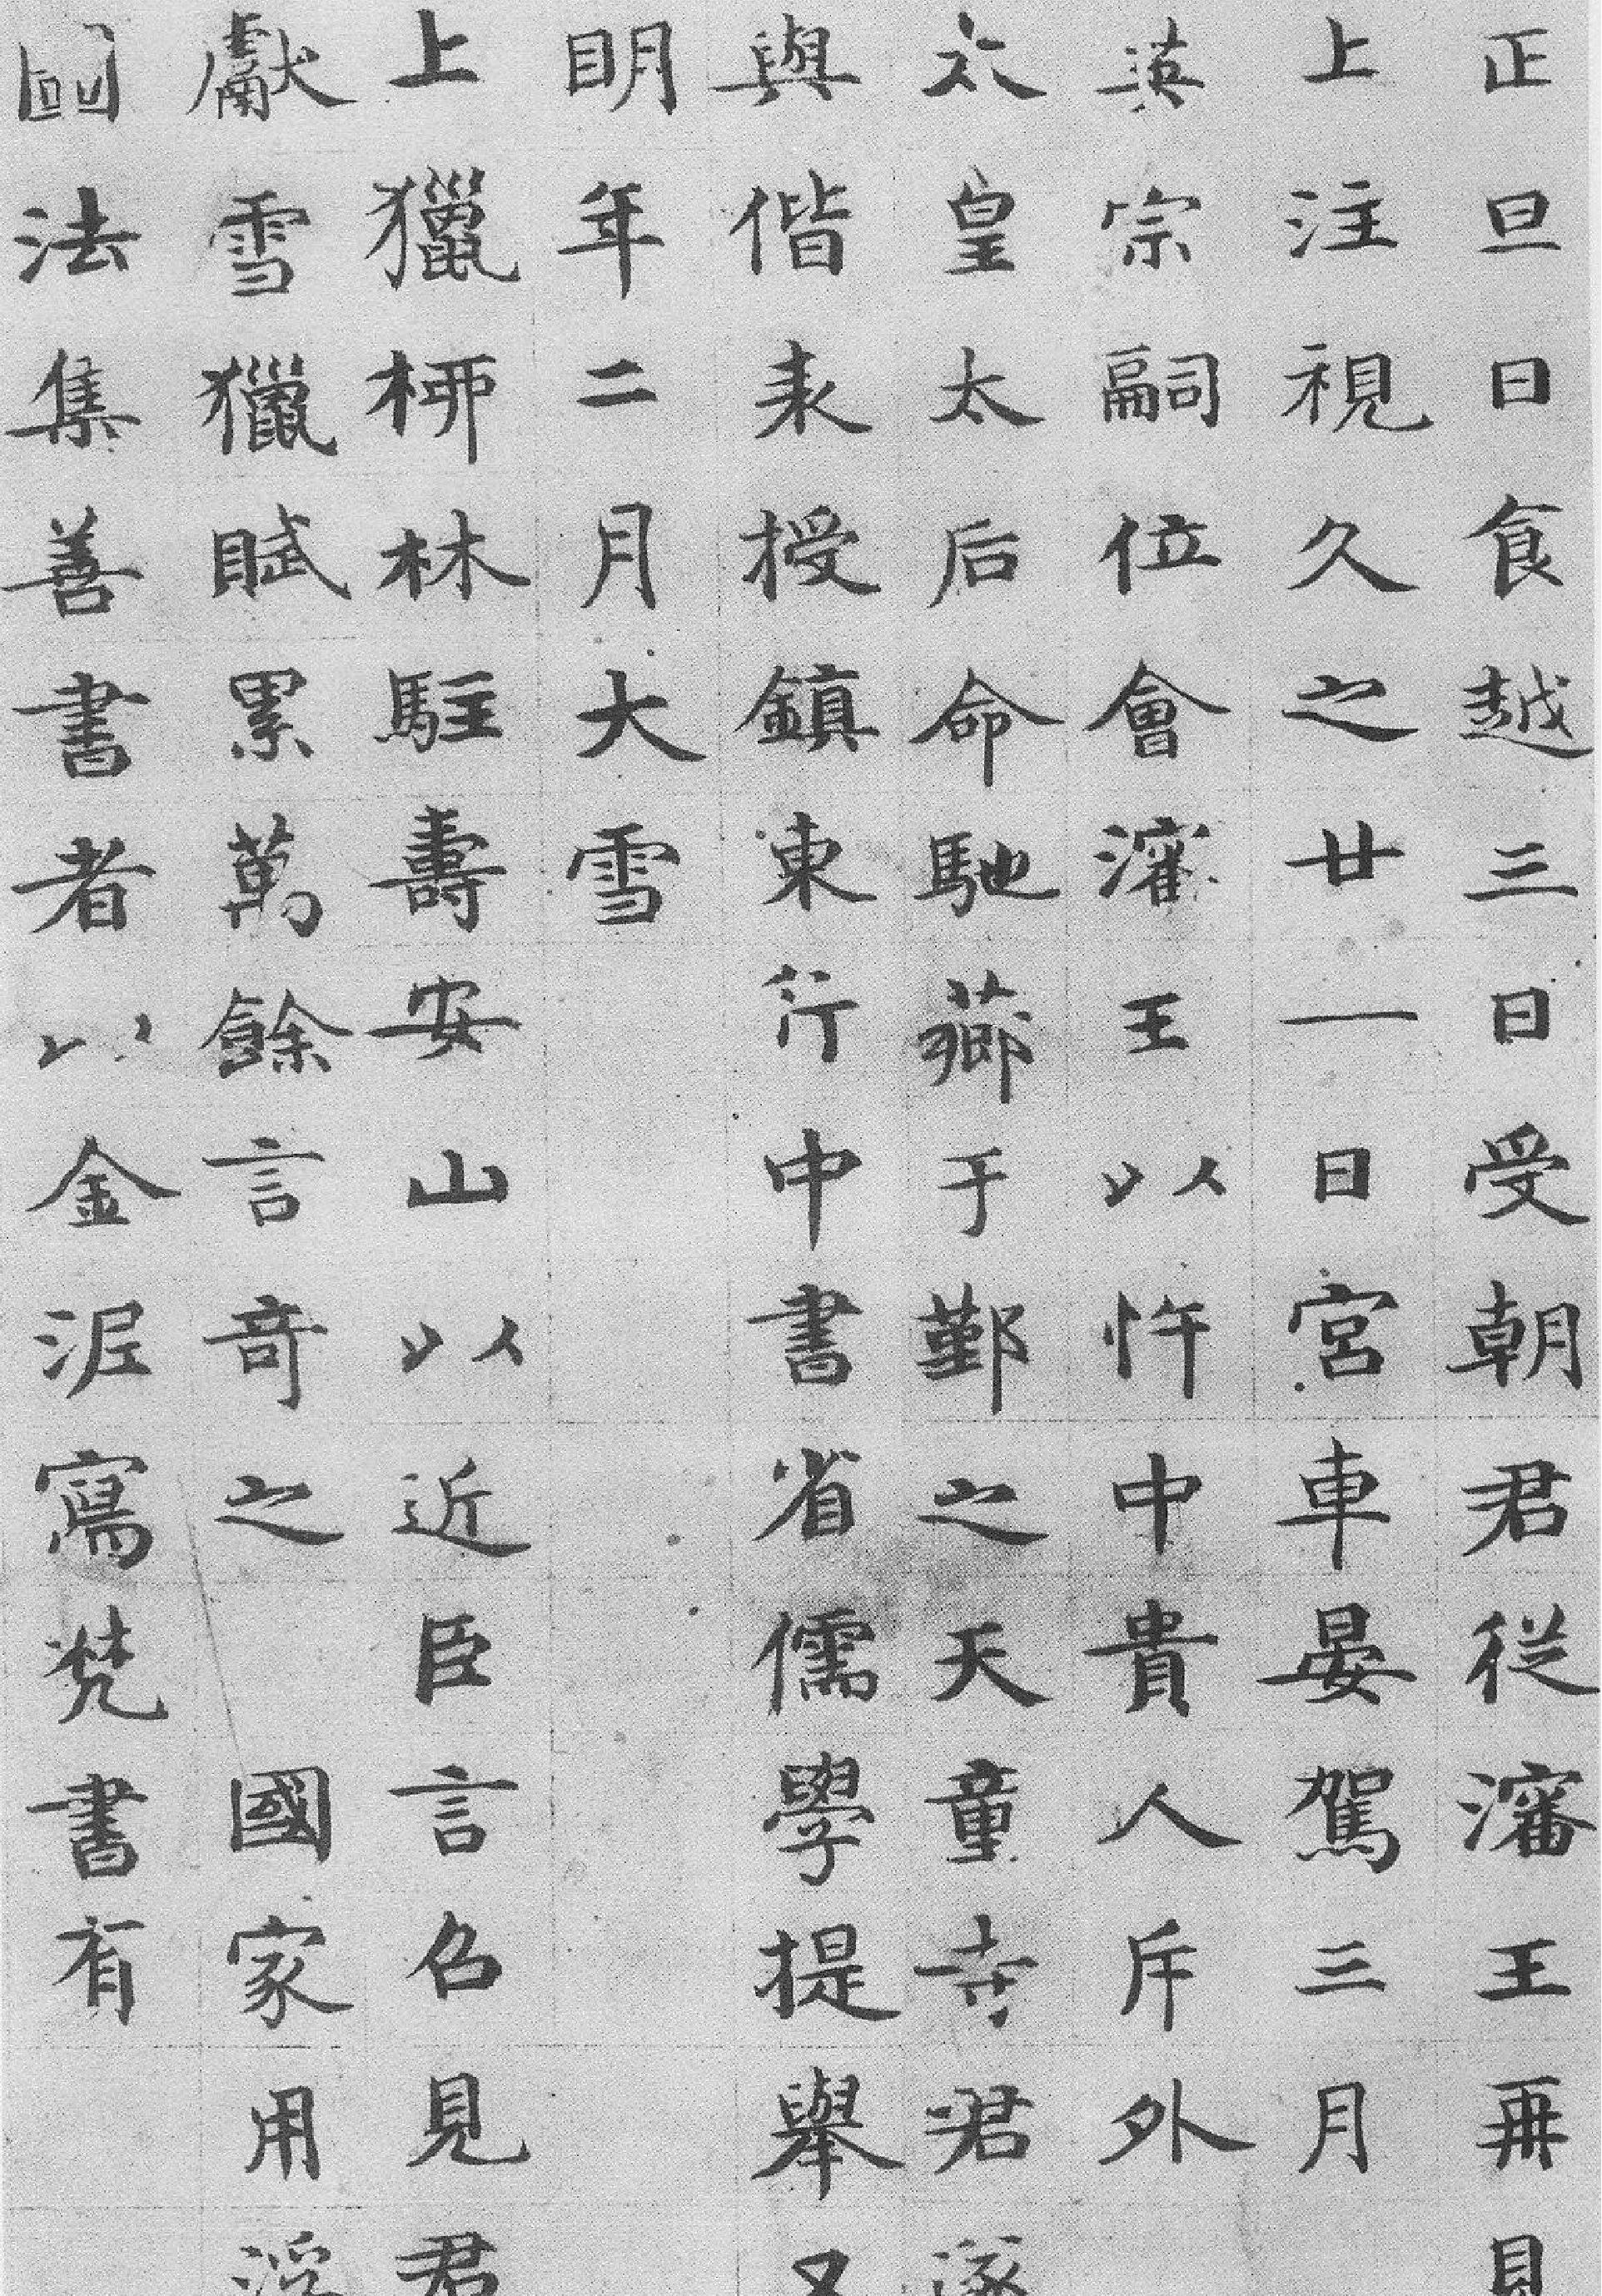 正旦日食越三日受朝君從瀋王再見
上注視久之廿一日宮車晏駕三月
英宗嗣位會瀋王以忤中貴人斥外
太皇太后命馳薌于鄞之天童寺君遂
與偕来授鎮東行中書省儒學提舉又
明年二月大雪
上獵桺林駐壽安山以近臣言召見君
獻雪獵賦累萬餘言奇之 國家用浮
圖法集善書者以金泥寫梵書有